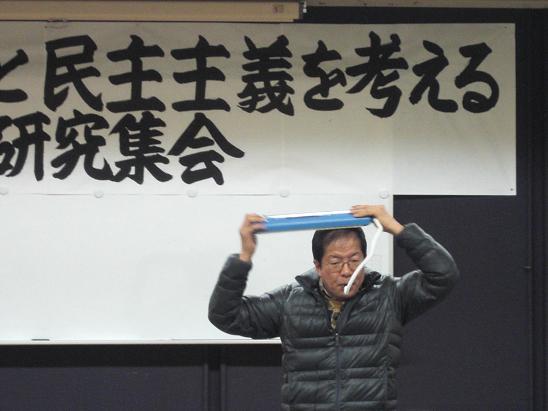 と民主主義を考える
研究集会